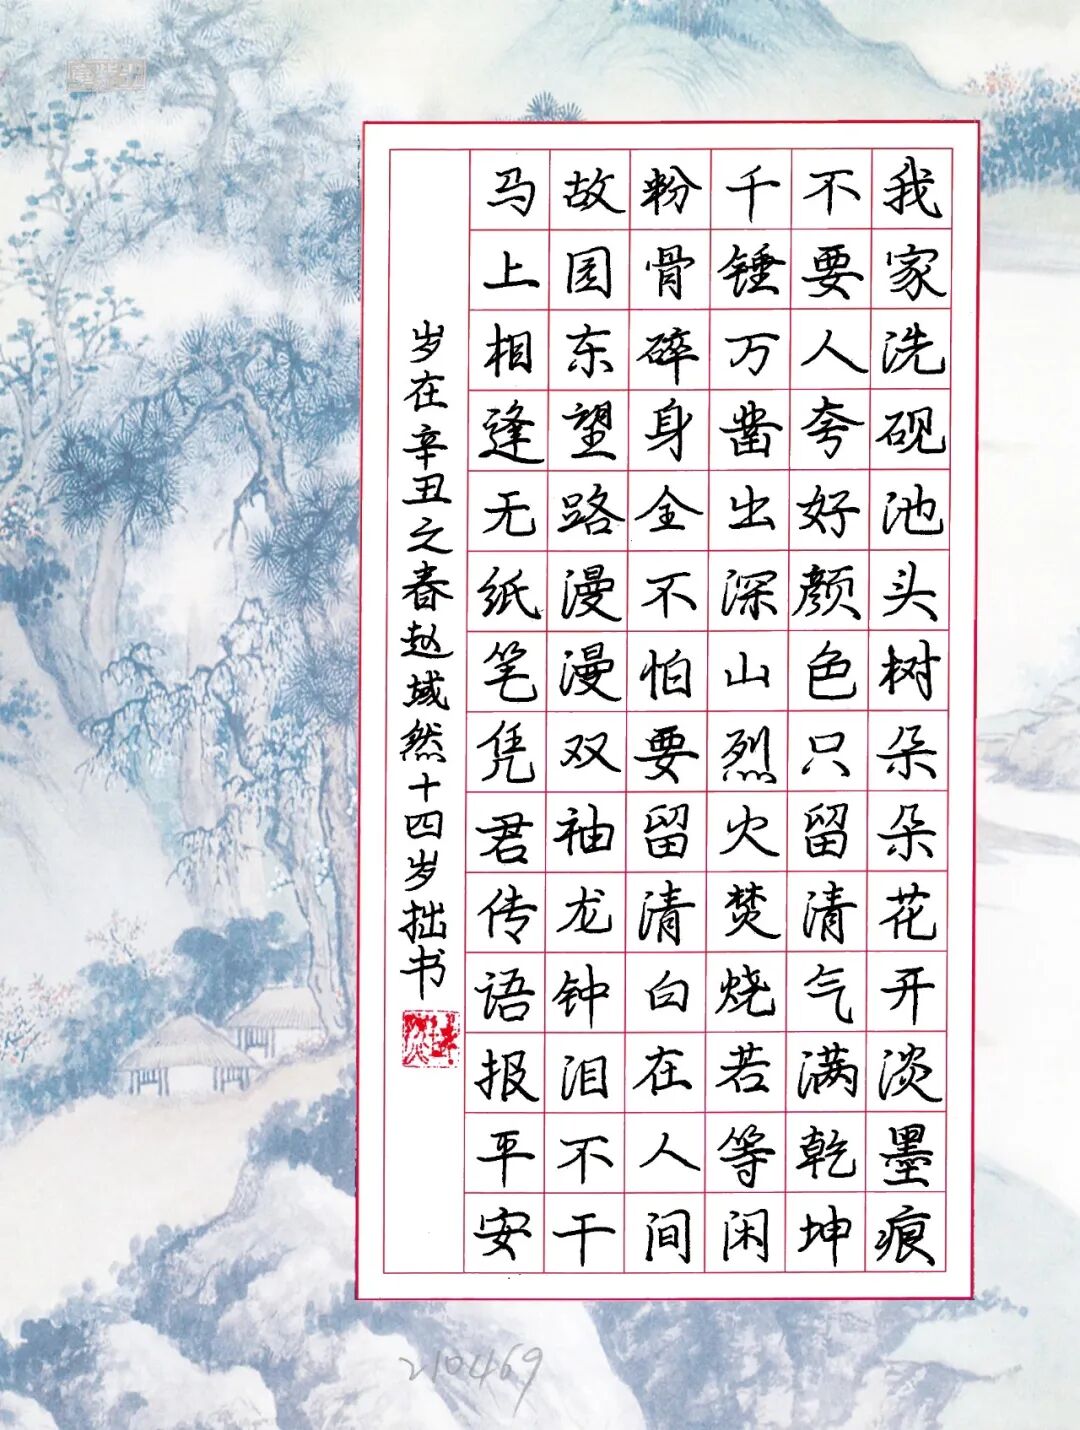 我家洗砚池头树朵朵花开淡墨痕
不要人夸好颜色只留清气满乾坤
千锤万凿出深山烈火焚烧若等闲
粉骨碎身全不怕要留清白在人间
故园东望路漫漫双袖龙钟泪不干
马上相逢无纸笔凭君传语报平安
岁在辛丑之春赵域然十四岁拙书
210469